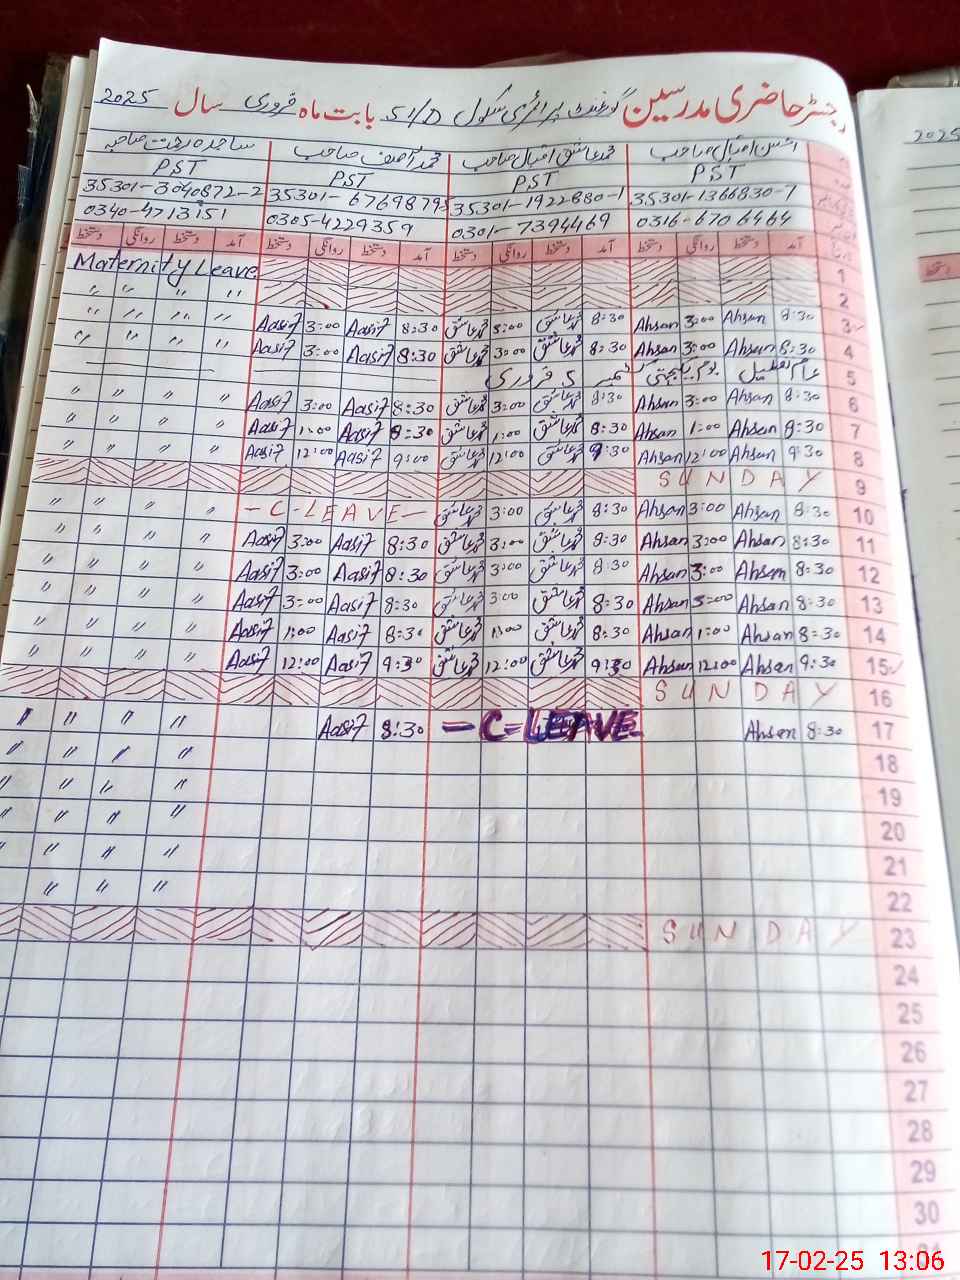 رجسٹر حاضری مدرسین گورنمنٹ پرائمری سکول 51/D بابت ماہ فروری سال 2025
احسن اقبال صاحب محمد عاشق اقبال صاحب محمد آصف صاحب ساجدہ رحمت صاحبہ
PST PST PST PST
35301-3040872-2 35301-6769879 35301-1922880-1 35301-1366830-7
0340-4713151 0305-4229359 0301-7394469 0316-6706464
آمد دستخط روانگی دستخط آمد دستخط روانگی دستخط آمد دستخط روانگی دستخط آمد دستخط روانگی دستخط
Maternity Leave 1
" " " " 2
" " " " Aasif 3:00 Aasif 8:30 محمد عاشق 3:00 محمد عاشق 8:30 Ahsan 3:00 Ahsan 8:30 3
" " " " Aasif 3:00 Aasif 8:30 محمد عاشق 3:00 محمد عاشق 8:30 Ahsan 3:00 Ahsan 8:30 4
عام تعطیل یوم یکجہتی کشمیر 5 فروری 5
" " " " Aasif 3:00 Aasif 8:30 محمد عاشق 3:00 محمد عاشق 8:30 Ahsan 3:00 Ahsan 8:30 6
" " " " Aasif 1:00 Aasif 8:30 محمد عاشق 1:00 محمد عاشق 8:30 Ahsan 1:00 Ahsan 8:30 7
" " " " Aasif 12:00 Aasif 9:00 محمد عاشق 12:00 محمد عاشق 9:30 Ahsan 12:00 Ahsan 9:30 8
SUNDAY 9
" " " " - C - LEAVE - محمد عاشق 3:00 محمد عاشق 8:30 Ahsan 3:00 Ahsan 8:30 10
" " " " Aasif 3:00 Aasif 8:30 محمد عاشق 3:00 محمد عاشق 8:30 Ahsan 3:00 Ahsan 8:30 11
" " " " Aasif 3:00 Aasif 8:30 محمد عاشق 3:00 محمد عاشق 8:30 Ahsan 3:00 Ahsan 8:30 12
" " " " Aasif 3:00 Aasif 8:30 محمد عاشق 3:00 محمد عاشق 8:30 Ahsan 3:00 Ahsan 8:30 13
" " " " Aasif 1:00 Aasif 8:30 محمد عاشق 1:00 محمد عاشق 8:30 Ahsan 1:00 Ahsan 8:30 14
" " " " Aasif 12:00 Aasif 9:30 محمد عاشق 12:00 محمد عاشق 9:30 Ahsan 12:00 Ahsan 9:30 15
SUNDAY 16
" " " " Aasif 8:30 - C = LEAVE Ahsan 8:30 17
" " " " 18
" " " " 19
" " " " 20
" " " " 21
" " " 22
SUNDAY 23
24
25
26
27
28
29
30
2025
دستخط
17-02-25 13:06